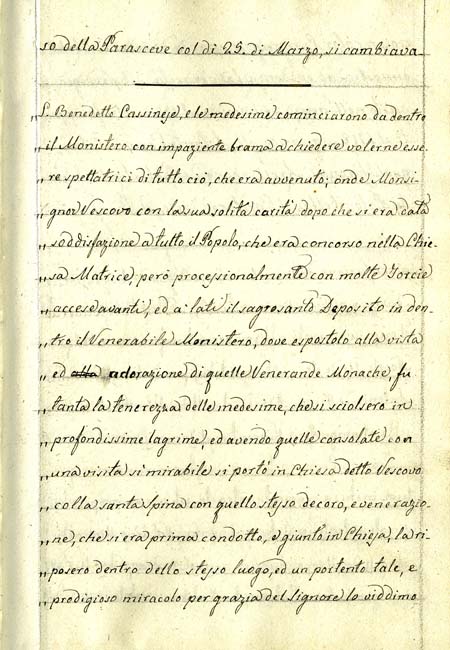 so della Parasceve col di 25. di Marzo, si cambiava
„S. Benedetto Cassinese, e le medesime cominciarono da dentro
„il Monistero con impaziente brama a chiedere volerne esse-
„re spettatrici di tutto ciò, che era avvenuto; onde Monsi-
„gnor Vescovo con la sua solita carità dopo che si era data
„soddisfazione a tutto il Popolo, che era concorso nella Chie-
„sa Matrice, però processionalmente con molte Torcie
„accese avanti, ed a' lati il sagrosanto Deposito in den-
„tro il Venerabile Monistero, dove espostolo alla vista
„ed alla adorazione di quelle Venerande Monache, fu
„tanta la tenerezza delle medesime, che si sciolsero in
„profondissime lagrime, ed avendo quelle consolate con
„una visita sì mirabile si portò in Chiesa detto Vescovo
„colla santa Spina con quello stesso decoro, e venerazio-
„ne, che si era prima condotto, e giunto in Chiesa, la ri-
„posero dentro dello stesso luogo, ed un portento tale, e
„prodigioso miracolo per grazia del Signore lo viddimo